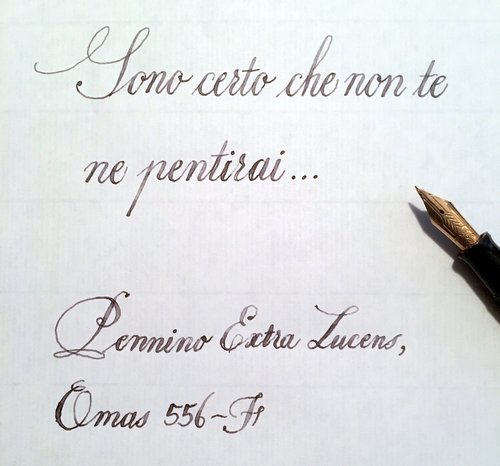 Sono certo che non te
ne pentirai...
Pennino Extra Lucens,
Omas 556-F